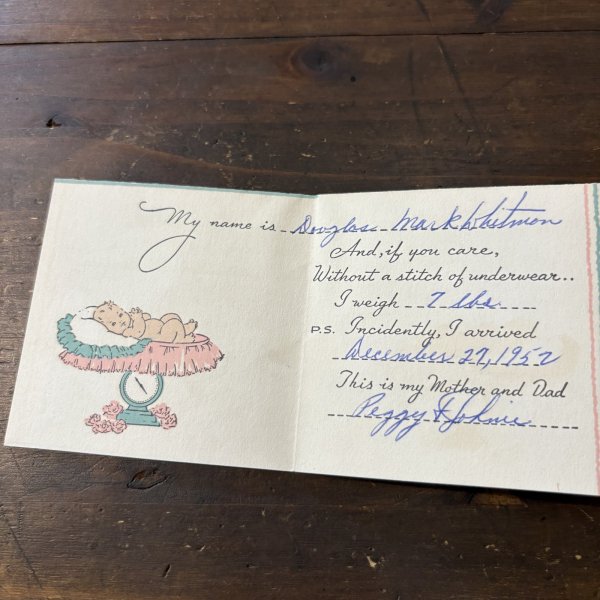 My name is Douglas Mark Whitmon
And, if you care,
Without a stitch of underwear..
I weigh 7 lbs
P.S. Incidently, I arrived
December 27, 1952
This is my Mother and Dad
Peggy & Johnie